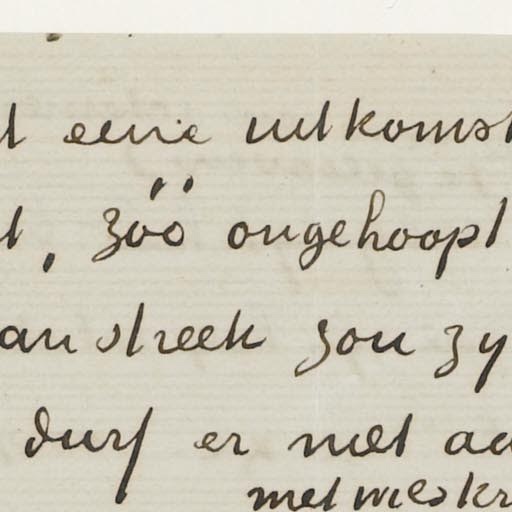 eene uitkomst
, zóó ongehoopt
van streek zou zy
durf er niet aa
met wieskr